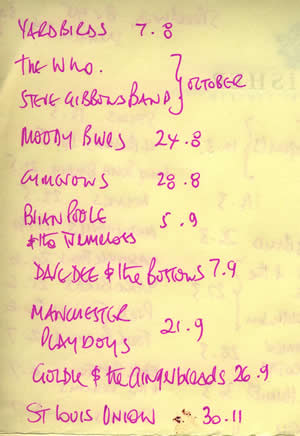 YARDBIRDS 7.8
THE WHO.
STEVE GIBBONS BAND } OCTOBER
MOODY BLUES 24.8
28.8
BRIAN POOLE
& the TREMELOES 5.9
DAVE DEE & the BOSTONS 7.9
MANCHESTER
PLAYBOYS 21.9
GOLDIE & the GINGERBREADS 26.9
ST LOUIS UNION 30.11